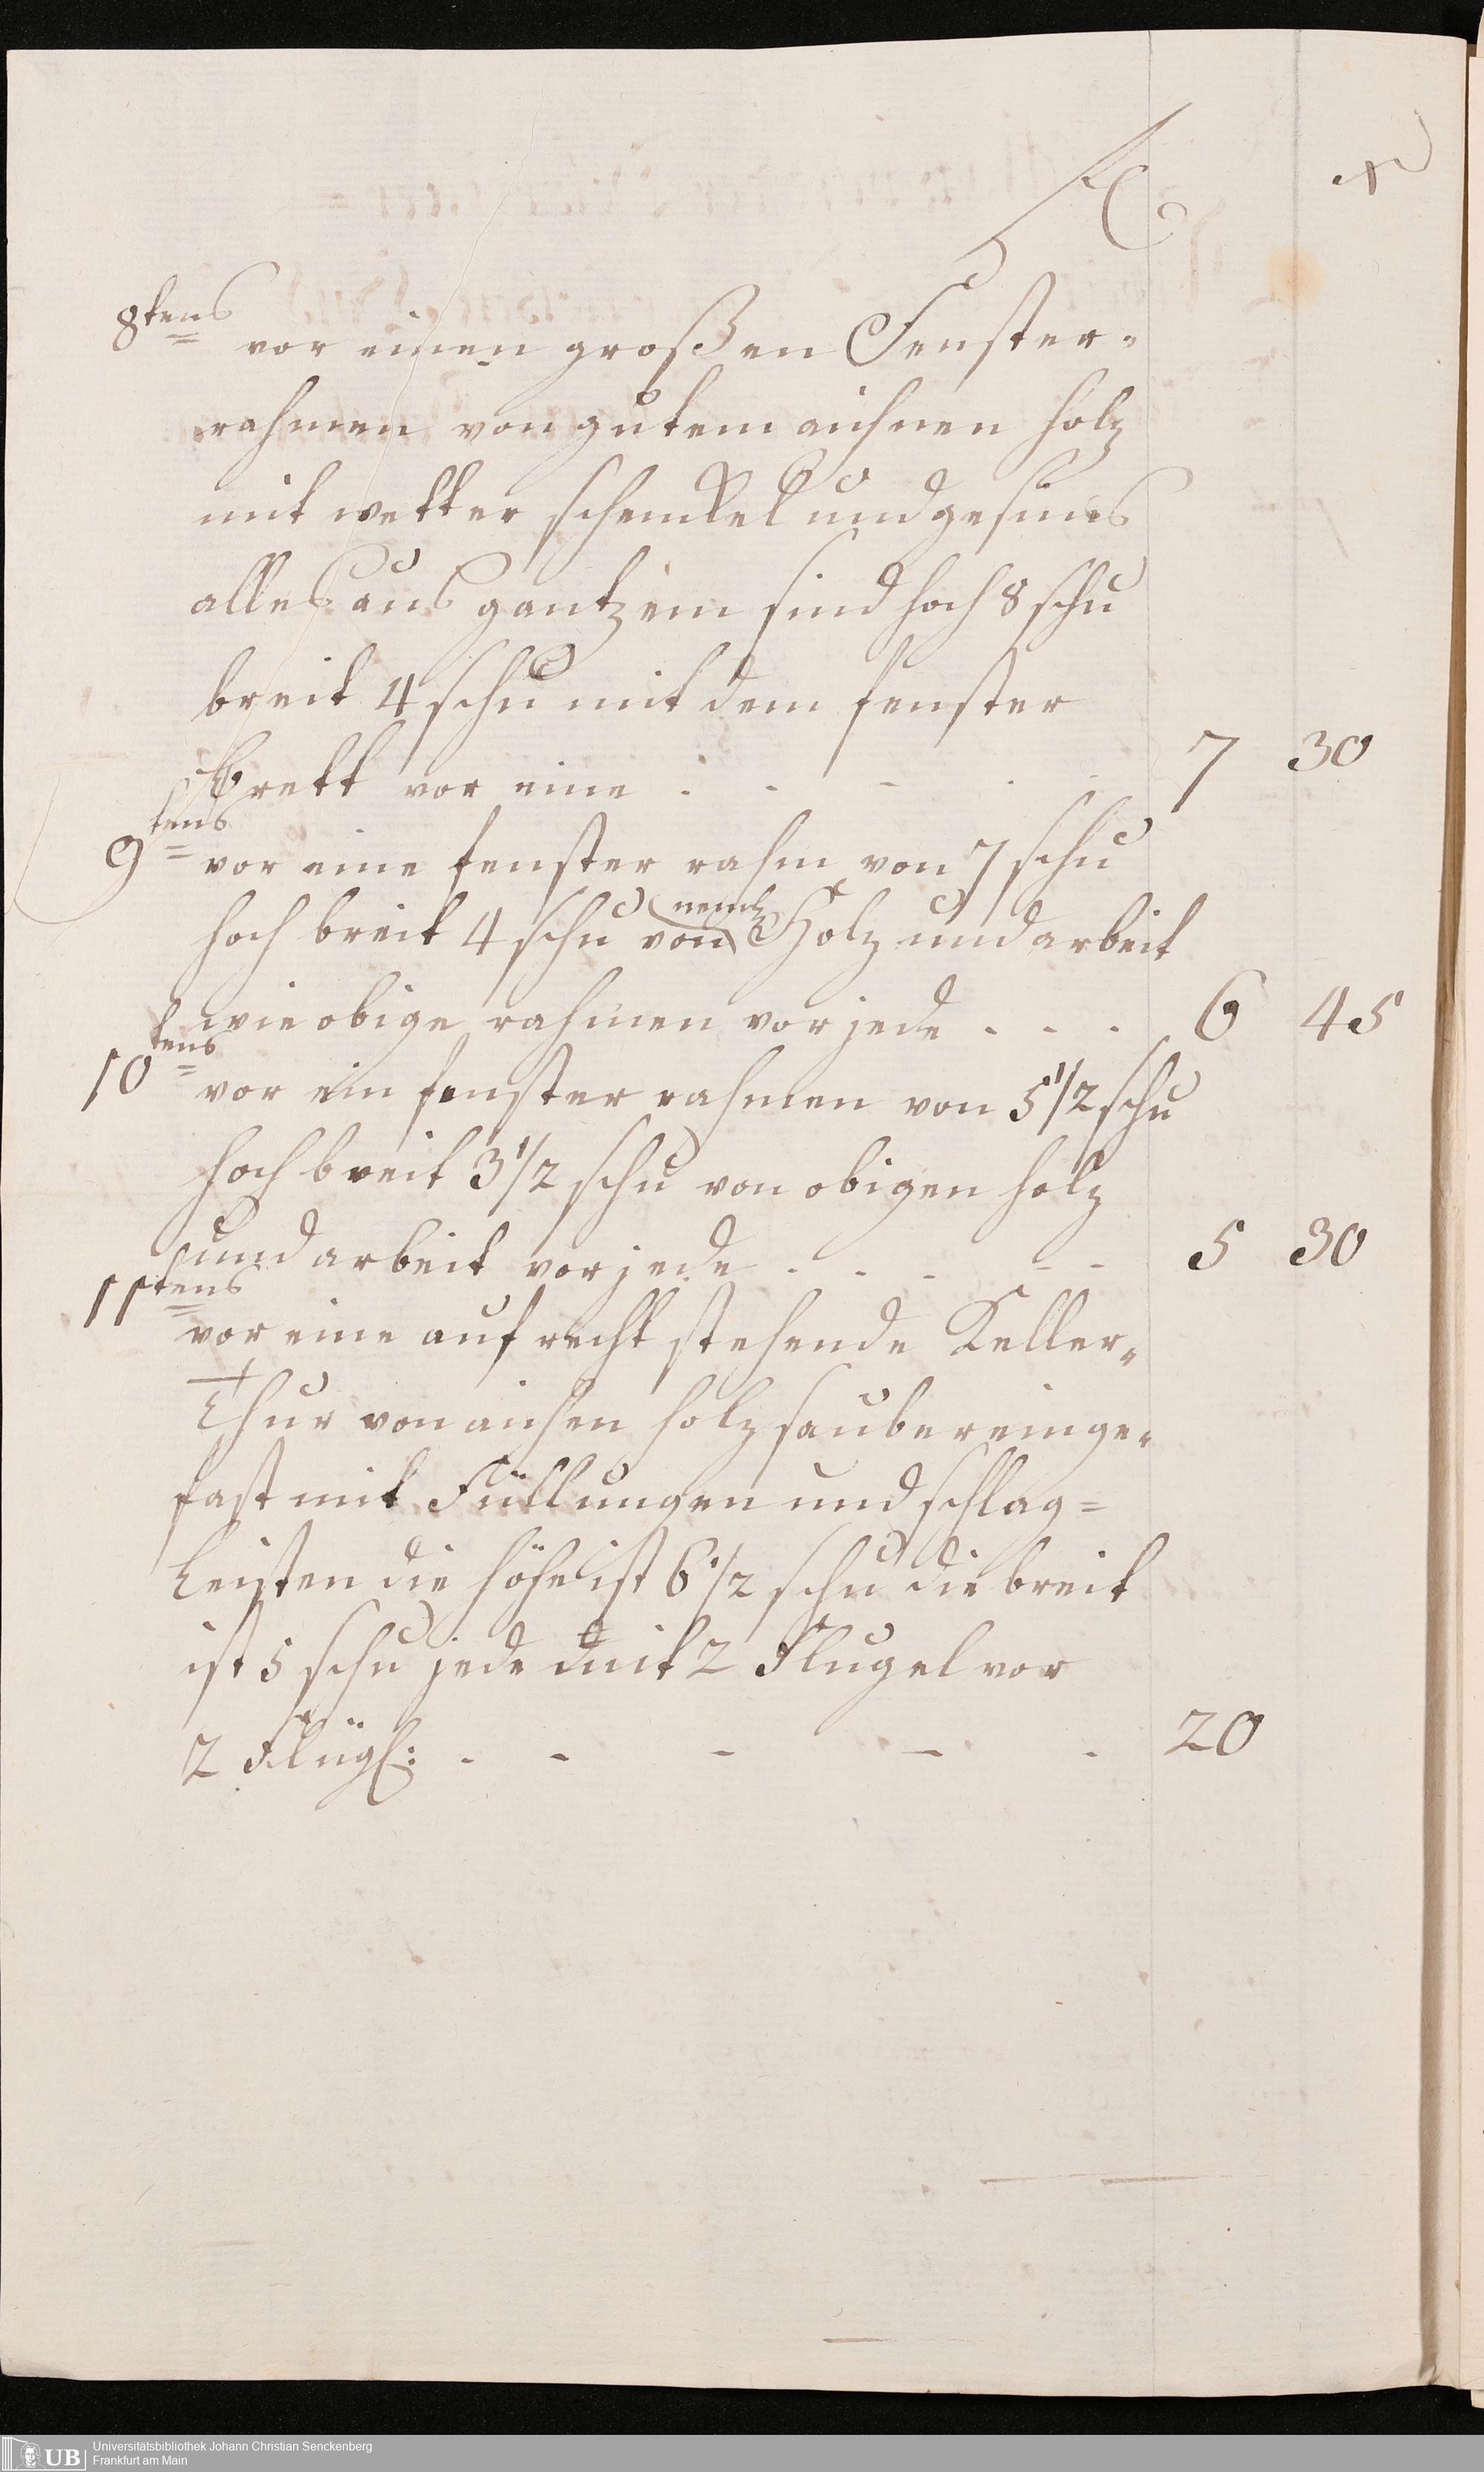 fl x
8tens vor einen großen Fenster-
rahmen von gutem aichnen holz
mit wetter schenckel und gesims
alles aus gantzem sind hoch 8 schu
breit 4 schu mit dem fenster
brett vor eine . . - . - 7 30
9tens vor eine fenster rahm von 7 schu
hoch breit 4 schu von neml: Holz und arbeit
wie obige rahmen vor jede - - . 6 45
10tens vor ein fenster rahmen von 5 1/2 schu
hoch breit 3 1/2 schu von obigen holz
und arbeit vor jede . - . - - 5 30
11tens vor eine auf recht stehende Keller-
Thur von aichen holz sauber einge-
fast mit Füllungen und schlag=
Leisten die höhe ist 6 1/2 schu die breit
ist 5 schu jede mit 2 Flugel vor
2 Flügl: - - - - - 20
UB
Universitätsbibliothek Johann Christian Senckenberg
Frankfurt am Main